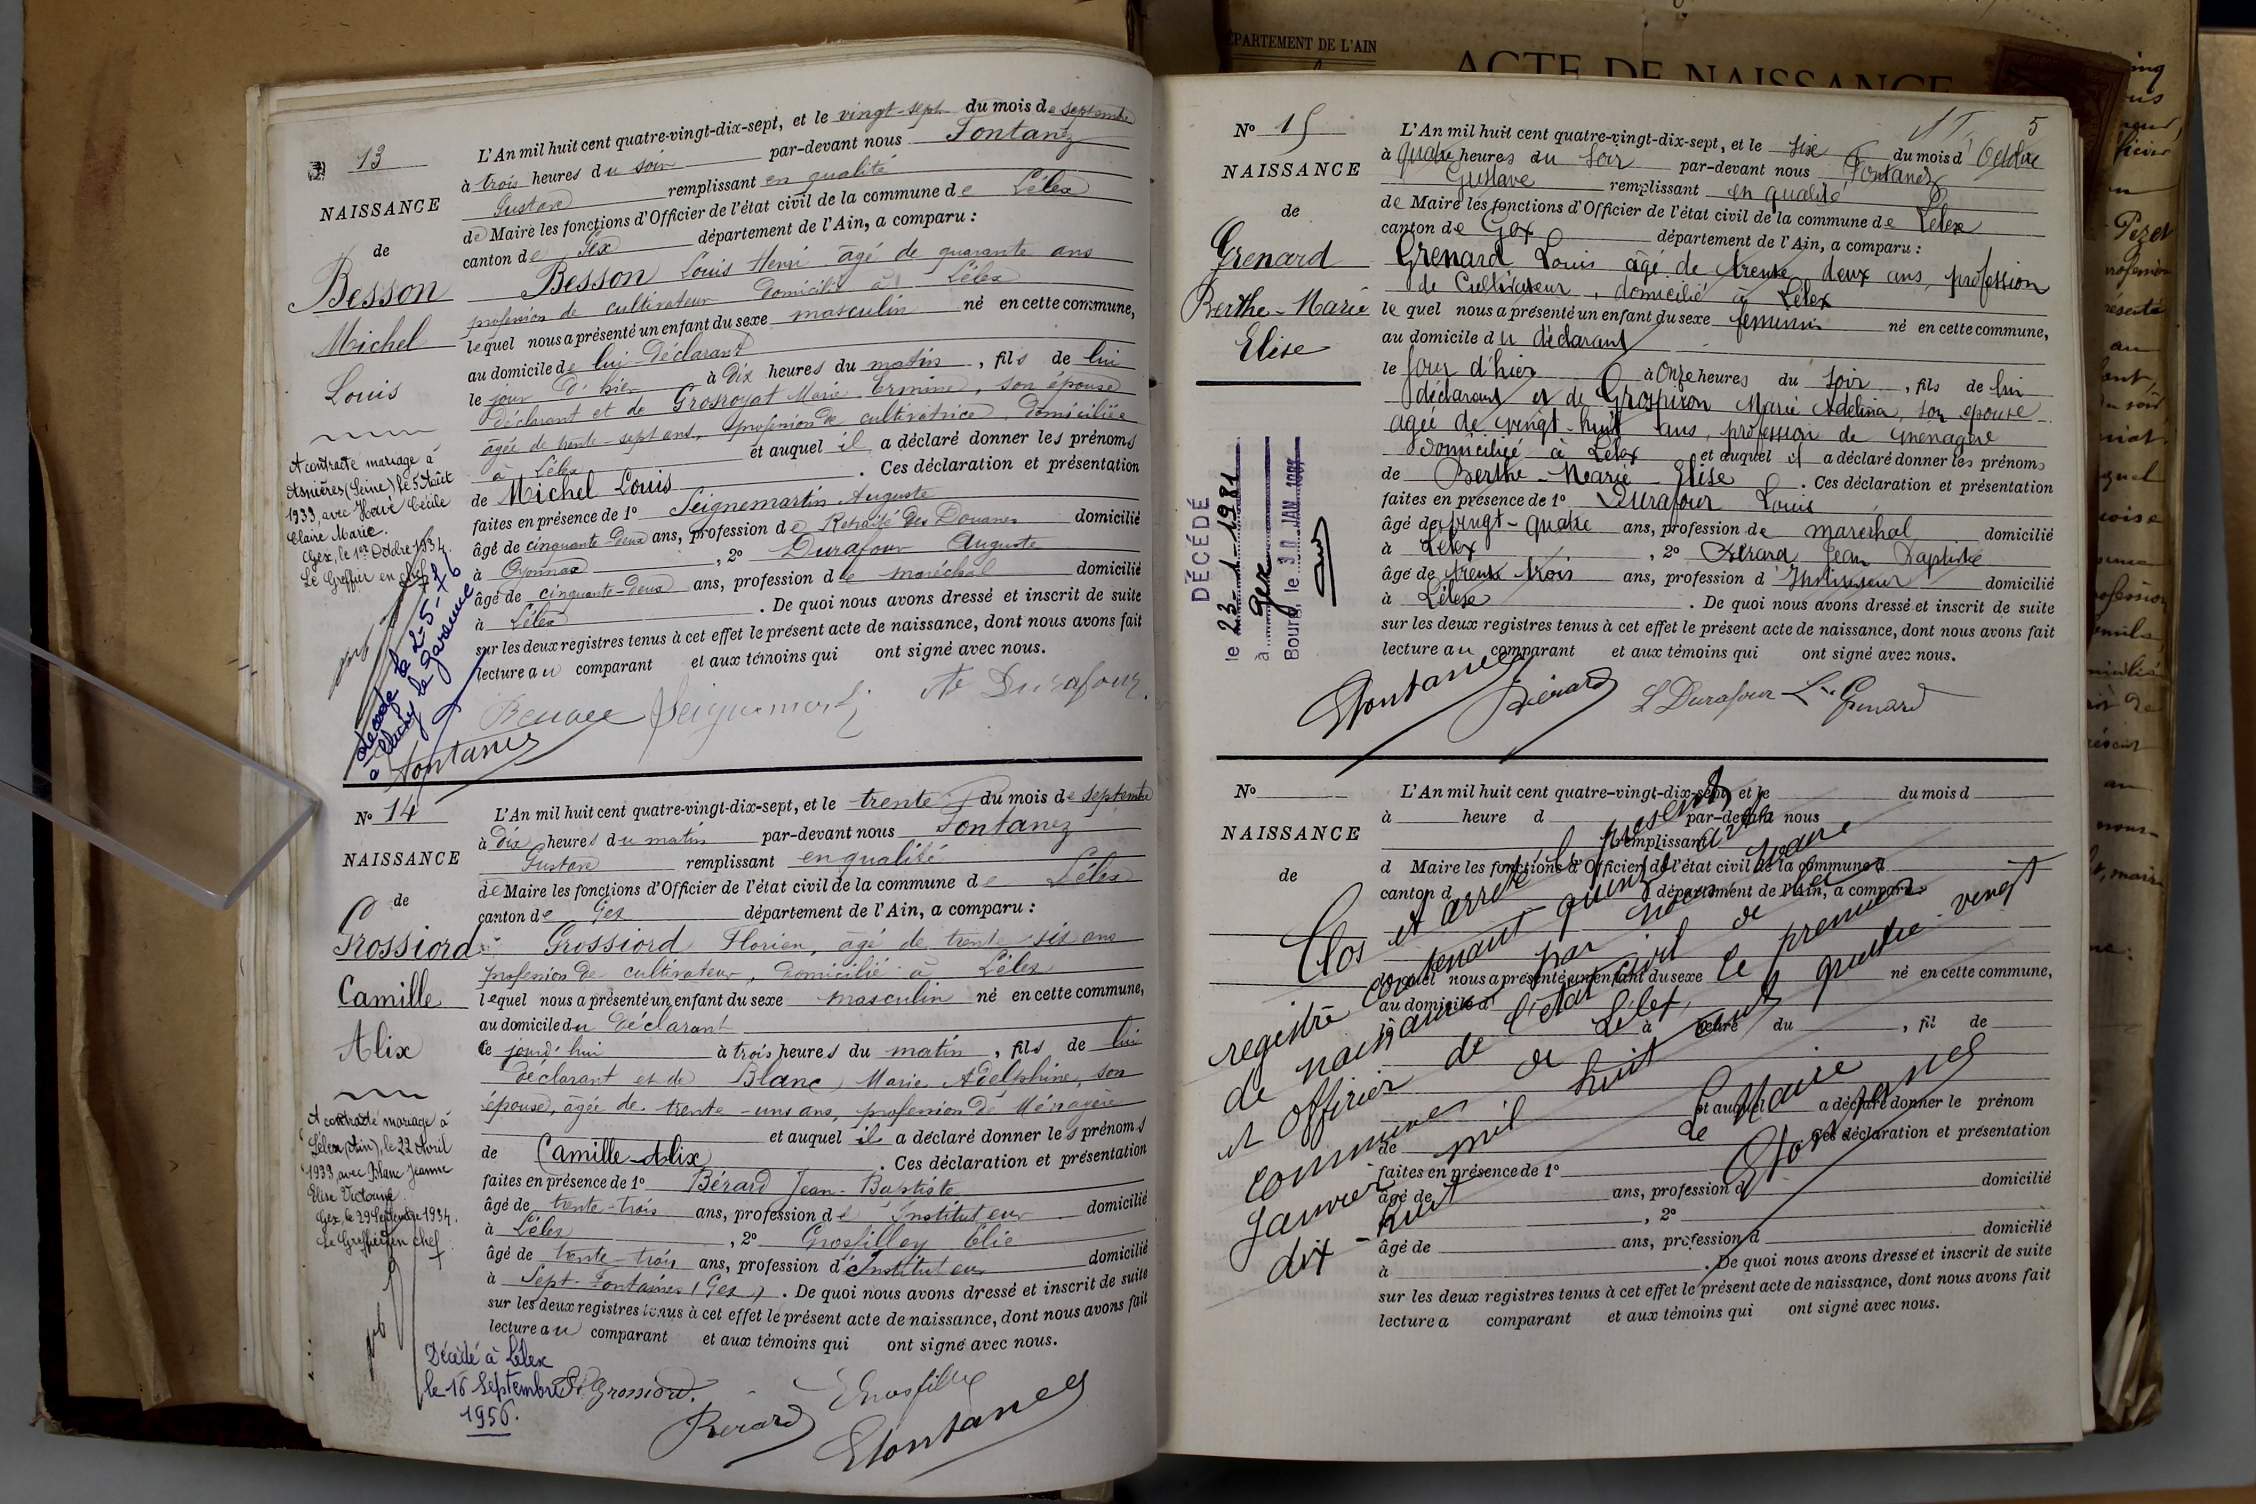 13
NAISSANCE
de
Besson
Michel
Louis
A contracté mariage à
Asnières (Seine) le 5 Août
1933, avec Hervé Cécile
Claire Marie.
Gex, le 1er Octobre 1934.
Le Greffier en chef
décédé le 2-5-76
à Clichy la Garenne
L'An mil huit cent quatre-vingt-dix-sept, et le vingt-sept du mois de septembre
à trois heures du soir par-devant nous Fontanez
Gustave remplissant en qualité
de Maire les fonctions d'Officier de l'état civil de la commune de Lélex
canton de Gex département de l'Ain, a comparu :
Besson Louis Henri âgé de quarante ans
profession de cultivateur domicilié à Lélex
lequel nous a présenté un enfant du sexe masculin né en cette commune,
au domicile de lui déclarant
le jour d'hier à dix heures du matin, fils de lui
déclarant et de Grosroyat Marie Ermine, son épouse
âgée de trente-sept ans, profession de cultivatrice, domiciliée
à Lélex et auquel il a déclaré donner les prénoms
de Michel Louis . Ces déclaration et présentation
faites en présence de 1º Seignemartin Auguste
âgé de cinquante-deux ans, profession de Retraité des Douanes domicilié
à Oyonnax , 2º Durafour Auguste
âgé de cinquante-deux ans, profession de maréchal domicilié
à Lélex . De quoi nous avons dressé et inscrit de suite
sur les deux registres tenus à cet effet le présent acte de naissance, dont nous avons fait
lecture au comparant et aux témoins qui ont signé avec nous.
Seignemartin
Durafour
Fontanez
Nº 14
NAISSANCE
de
Grossiord
Camille
Alix
A contracté mariage à
Lélex (Ain), le 22 Avril
1933, avec Blanc Jeanne
Elise Victorine
Gex, le 29 Septembre 1934.
Le Greffier en chef
Décédé à Lélex
le 16 Septembre
1956.
L'An mil huit cent quatre-vingt-dix-sept, et le trente du mois de septembre
à dix heures du matin par-devant nous Fontanez
Gustave remplissant en qualité
de Maire les fonctions d'Officier de l'état civil de la commune de Lélex
canton de Gex département de l'Ain, a comparu :
Grossiord Florien, âgé de trente six ans
profession de cultivateur, domicilié à Lélex
lequel nous a présenté un enfant du sexe masculin né en cette commune,
au domicile du déclarant
ce jourd'hui à trois heures du matin, fils de lui
déclarant et de Blanc Marie Adelphine, son
épouse, âgée de trente-uns ans, profession de Ménagère
et auquel il a déclaré donner les prénoms
de Camille-Alix . Ces déclaration et présentation
faites en présence de 1º Bérard Jean-Baptiste
âgé de trente-trois ans, profession de Instituteur domicilié
à Lélex , 2º Grosfilley Elie
âgé de trente-trois ans, profession d'Instituteur domicilié
à Sept-Fontaines (Gex) . De quoi nous avons dressé et inscrit de suite
sur les deux registres tenus à cet effet le présent acte de naissance, dont nous avons fait
lecture au comparant et aux témoins qui ont signé avec nous.
Grossiord.
Grosfilley
Berard
Fontanez
DÉPARTEMENT DE L'AIN
ACTE DE NAISSANCE
5
Nº 15
NAISSANCE
de
Grenard
Berthe-Marie
Elise
DÉCÉDÉ
le 23-1-1981
à Gex
Bourg, le 30 JAN
L'An mil huit cent quatre-vingt-dix-sept, et le six du mois d'Octobre
à quatre heures du soir par-devant nous Fontanez
Gustave remplissant en qualité
de Maire les fonctions d'Officier de l'état civil de la commune de Lélex
canton de Gex département de l'Ain, a comparu :
Grenard Louis âgé de trente deux ans, profession
de Cultivateur, domicilié à Lélex
lequel nous a présenté un enfant du sexe féminin né en cette commune,
au domicile du déclarant
le jour d'hier à Onze heures du soir, fils de lui
déclarant et de Grospiron Marie Adelina, son épouse
agée de vingt-huit ans, profession de ménagère
domiciliée à Lélex et auquel il a déclaré donner les prénoms
de Berthe-Marie-Elise . Ces déclaration et présentation
faites en présence de 1º Durafour Louis
âgé de vingt-quatre ans, profession de maréchal domicilié
à Lélex , 2º Bérard Jean Baptiste
âgé de trente trois ans, profession d'Instituteur domicilié
à Lélex . De quoi nous avons dressé et inscrit de suite
sur les deux registres tenus à cet effet le présent acte de naissance, dont nous avons fait
lecture au comparant et aux témoins qui ont signé avec nous.
Fontanez
Bérard
L Durafour
Ls Grenard
Nº
NAISSANCE
de
L'An mil huit cent quatre-vingt-dix-sept, et le du mois d
à heure d par-devant nous
remplissant
d Maire les fonctions d'Officier de l'état civil de la commune d
canton d département de l'Ain, a comparu
lequel nous a présenté un enfant du sexe né en cette commune,
au domicile d
à heure du , fil de
et auquel a déclaré donner le prénom
de Ces déclaration et présentation
faites en présence de 1º
âgé de ans, profession d domicilié
, 2º
âgé de ans, profession d domicilié
à . De quoi nous avons dressé et inscrit de suite
sur les deux registres tenus à cet effet le présent acte de naissance, dont nous avons fait
lecture a comparant et aux témoins qui ont signé avec nous.
Clos et arrêté le présent
registre contenant quinze actes
de naissance par nous Maire
et officier de l'état civil de la
commune de Lélex, le premier
Janvier mil huit cent quatre-vingt
dix-huit
Le Maire
Fontanez